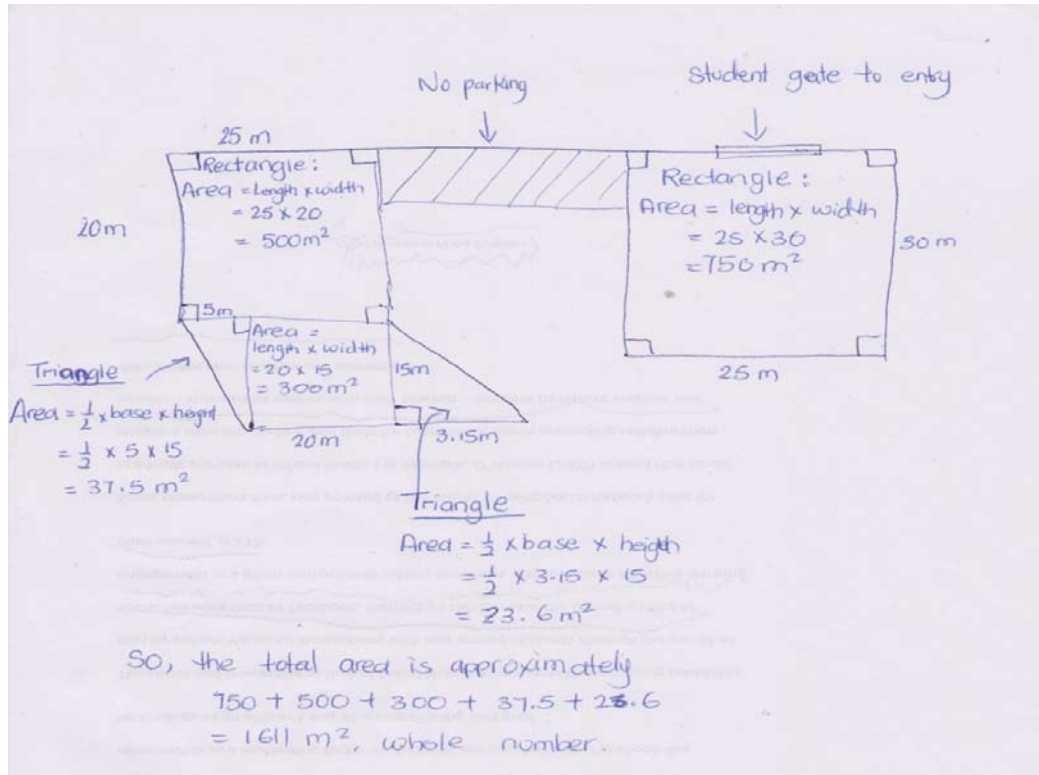 No parking
Student gate to entry
25 m
Rectangle:
Area = length x width
= 25 x 20
= 500m²
20m
Rectangle:
Area = length x width
= 25 x 30
= 750 m²
30 m
25 m
5m
Area =
length x width
= 20 x 15
= 300m²
15m
20m
3.15m
Triangle
Area = ½ x base x height
= ½ x 5 x 15
= 37.5 m²
Triangle
Area = ½ x base x heigth
= ½ x 3.15 x 15
= 23.6 m²
So, the total area is approximately
750 + 500 + 300 + 37.5 + 23.6
= 1611 m². whole number.